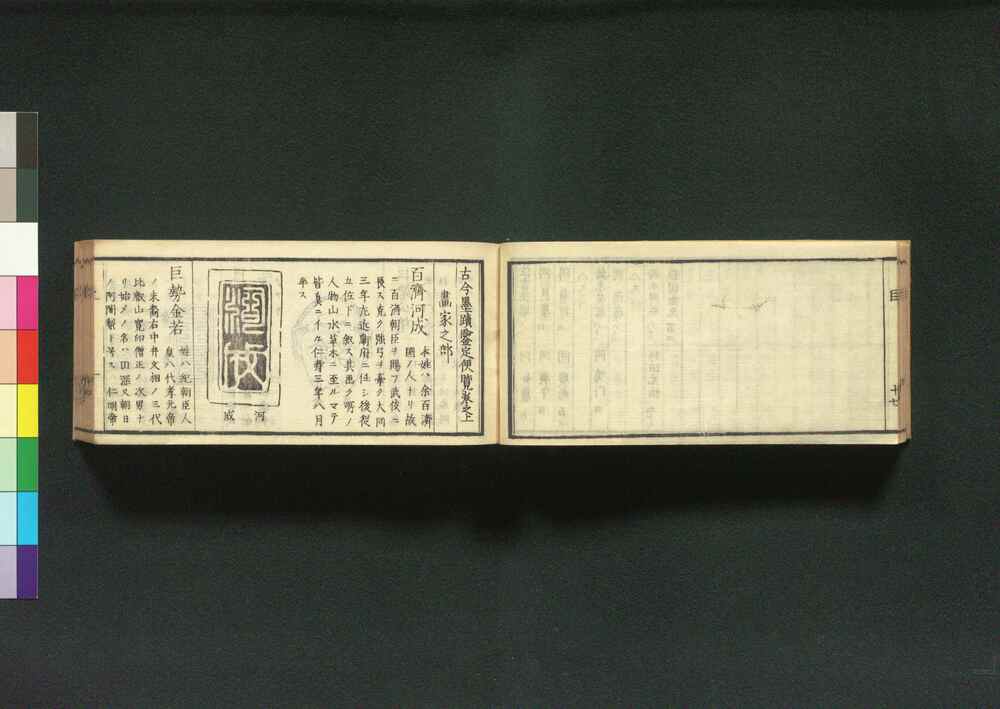 古今墨蹟鑒定便覧巻之上
畫家之部
百濟河成 本姓ハ余百濟
國ノ人ナリ故
ニ百濟朝臣ヲ賜フ武侠ニ
長ス克ク強弓ヲ牽ク大同
三年左近衛府ニ任シ後從
五位下ニ叙ス其画ク所ノ
人物山水草木ニ至ルマテ
皆真ニイル仁壽三年八月
卒ス
河成
河
成
巨勢金若 姓ハ紀朝臣人
皇八代孝元帝
ノ末裔右中弁文相ノ三代
比叡山寛印僧正ノ次男ナ
リ始メノ名ハ
ノ阿闍梨ト号ス仁明帝
目
廿七